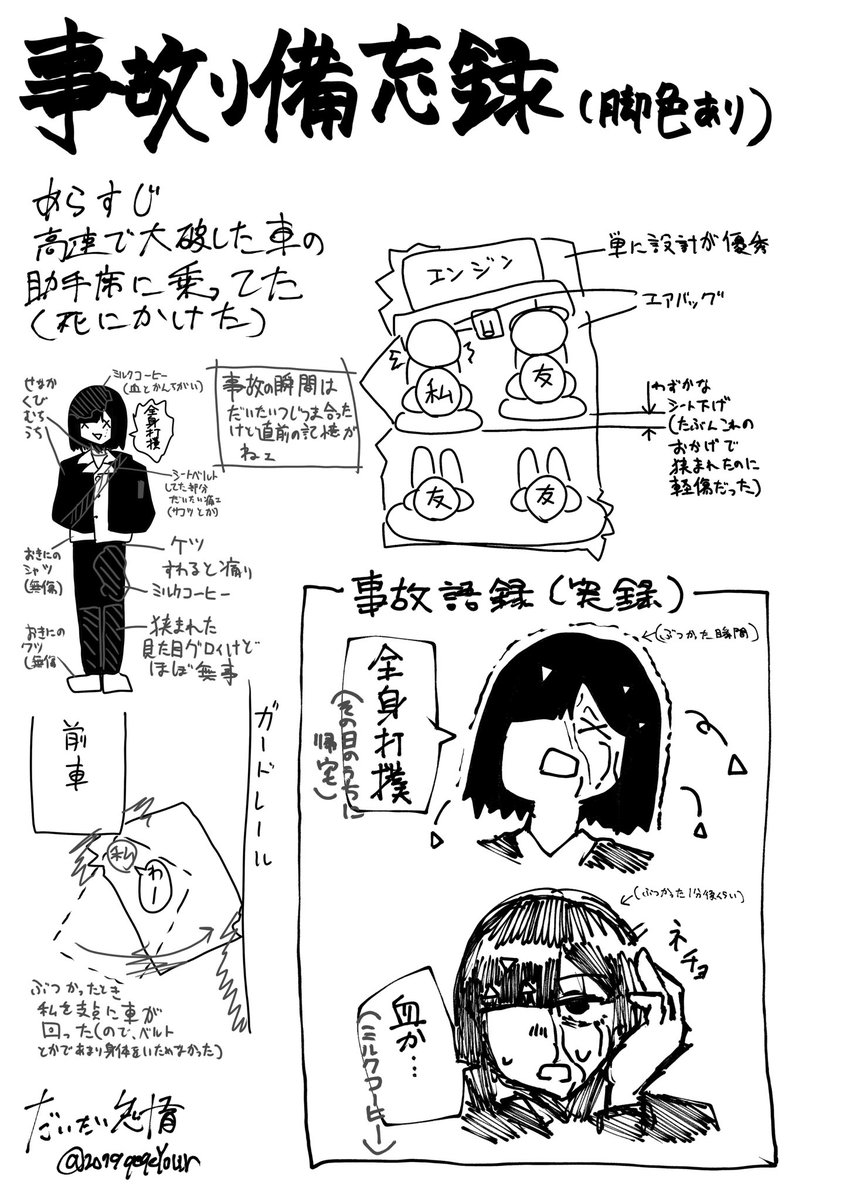 事故り備忘録(脚色あり)
あらすじ
高速で大破した車の
助手席に乗ってた
(死にかけた)
エンジン
単に設計が優秀
エアバッグ
私
友
友
友
わずかな
シート下げ
(たぶんこれの
おかげで
狭まれたのに
軽傷だった)
事故の瞬間は
だいたいつじつま合った
けど直前の記憶が
ねェ
ミルクコーヒー
(血とかんちがい)
せなか
くび
むち
うち
全身打撲
シートベルト
してた部分
だいたい痛ェ
(サコツとか)
おきにの
シャツ
(無傷)
ケツ
すわると痛い
ミルクコーヒー
おきにの
クツ
(無傷)
狭まれた
見た目グロいけど
ほぼ無事
前車
ガードレール
私
わー
ぶつかったとき
私を支点に車が
回った(ので、ベルト
とかであまり身体をいためなかった)
事故語録(実録)
(ぶつかった瞬間)
全身打撲
(その日のうちに
帰宅)
(ぶつかった1分後くらい)
ネチョ
血か…
(ミルクコーヒー)
だいたい怠惰